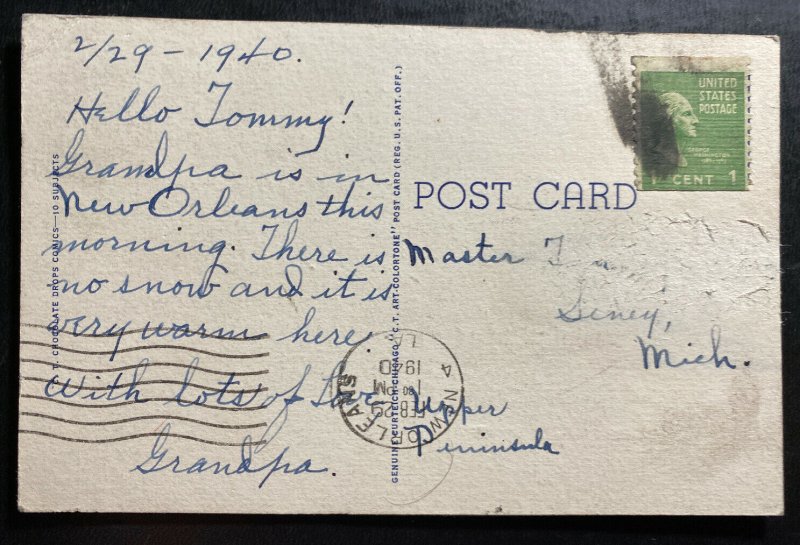 2/29 – 1940.
Hello Tommy!
Grandpa is in
New Orleans this
morning. There is
no snow and it is
very warm here.
With lots of Love
Grandpa.
C.T. CHOCOLATE DROPS COMICS—10 SUBJECTS
GENUINE CURTEICH-CHICAGO "C.T. ART-COLORTONE" POST CARD (REG. U.S. PAT. OFF.)
POST CARD
UNITED
STATES
POSTAGE
GEORGE
WASHINGTON
CENT 1
Master
Seney,
Mich.
Upper
Peninsula
NEW ORLEANS
LA
FEB 29
PM
1940